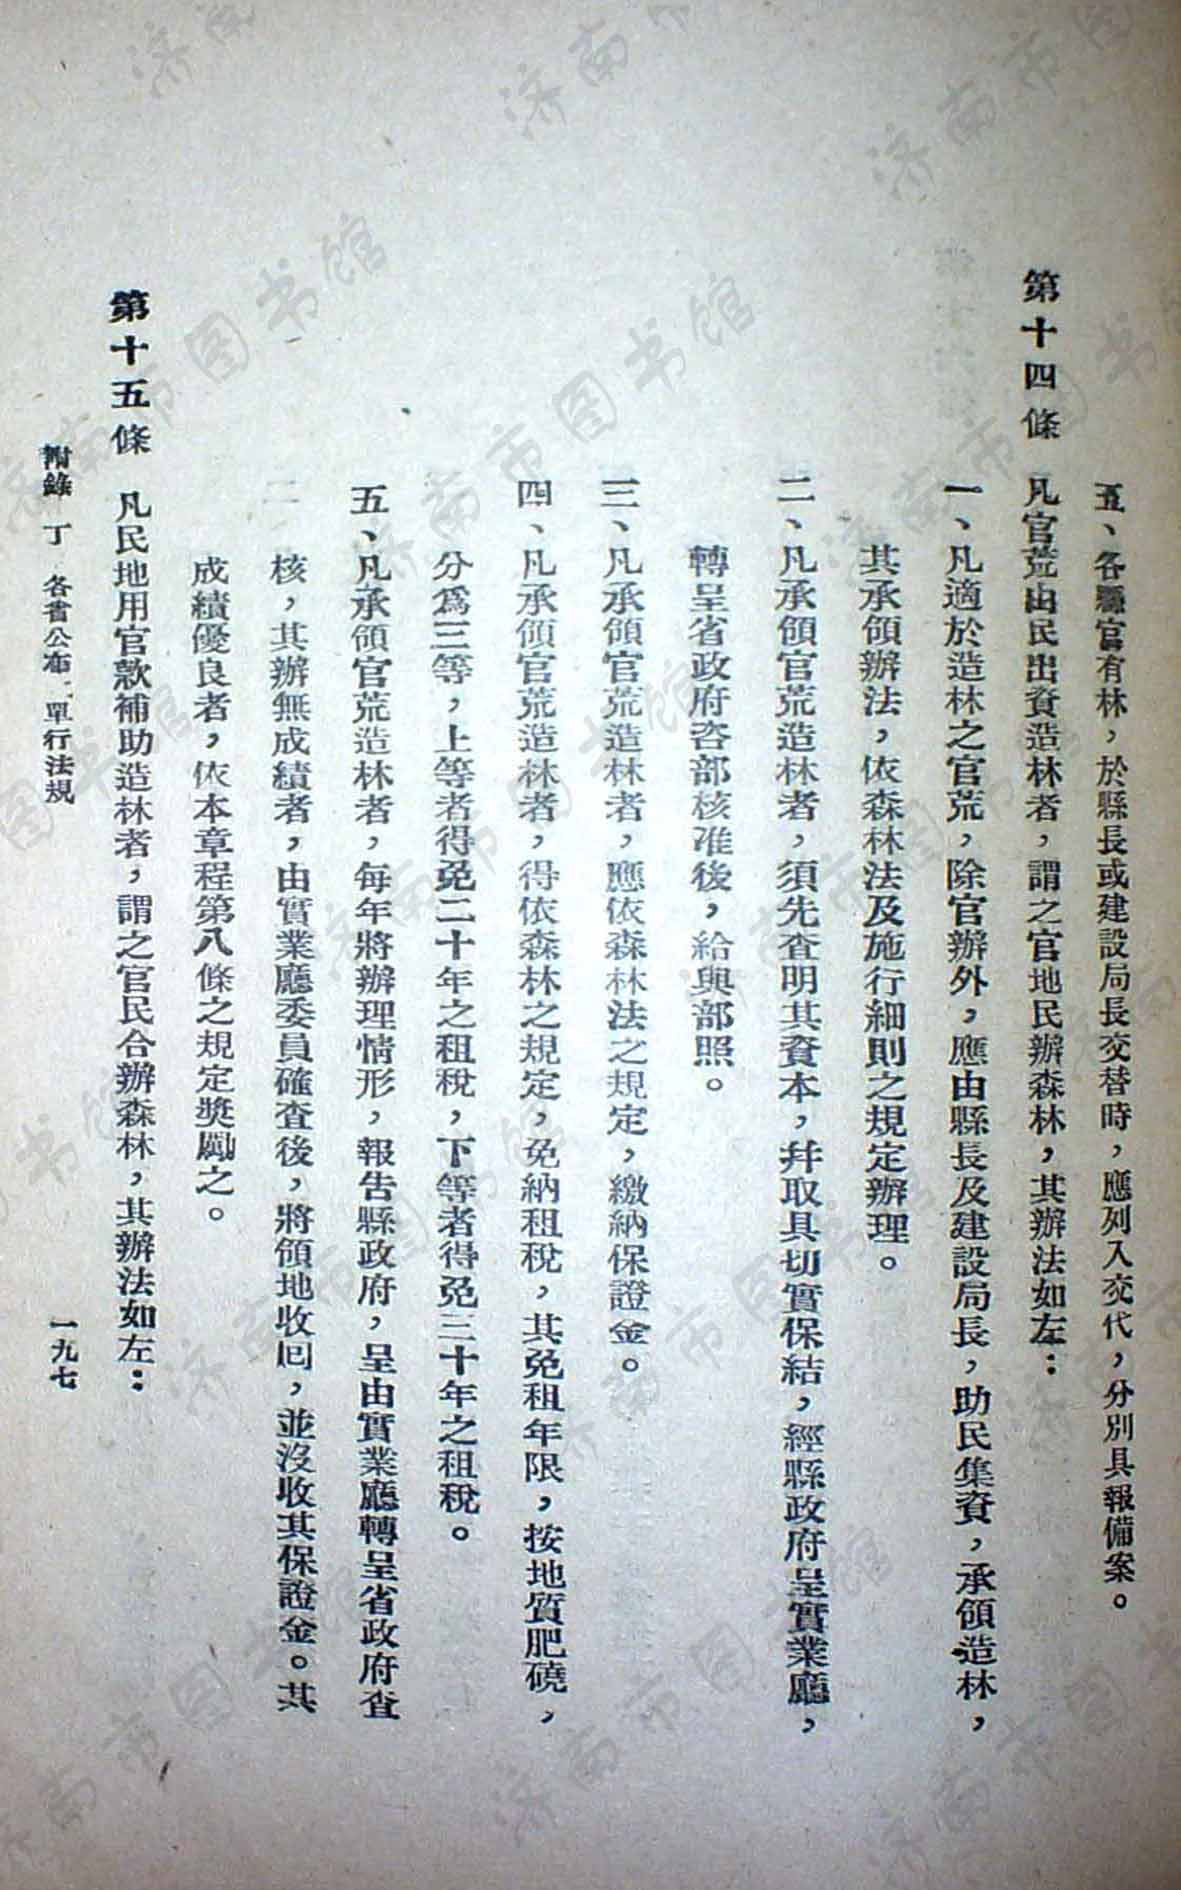 五、各縣官有林，於縣長或建設局長交替時，應列入交代，分別具報備案。
第十四條　凡官荒由民出資造林者，謂之官地民辦森林，其辦法如左：
一、凡適於造林之官荒，除官辦外，應由縣長及建設局長，助民集資，承領造林，
其承領辦法，依森林法及施行細則之規定辦理。
二、凡承領官荒造林者，須先查明其資本，幷取具切實保結，經縣政府呈實業廳，
轉呈省政府咨部核准後，給與部照。
三、凡承領官荒造林者，應依森林法之規定，繳納保證金。
四、凡承領官荒造林者，得依森林之規定，免納租稅，其免租年限，按地質肥磽，
分爲三等，上等者得免二十年之租稅，下等者得免三十年之租稅。
五、凡承領官荒造林者，每年將辦理情形，報告縣政府，呈由實業廳轉呈省政府查
核，其辦無成績者，由實業廳委員確查後，將領地收回，並沒收其保證金。其
成績優良者，依本章程第八條之規定獎勵之。
第十五條　凡民地用官款補助造林者，謂之官民合辦森林，其辦法如左：
附錄　丁　各省公布之單行法規
一九七
济南市图书馆